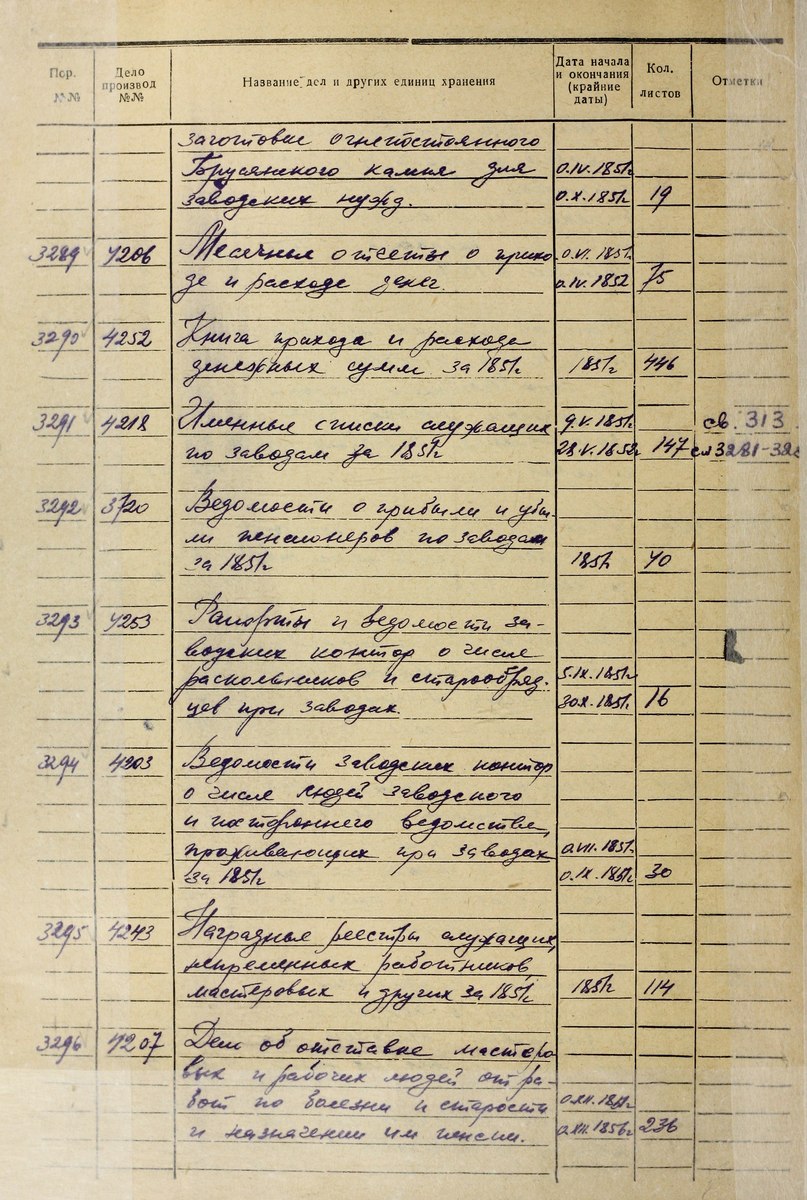 Пор. №№
Дело производ №№
Название дел и других единиц хранения
Дата начала и окончания (крайние даты)
Кол. листов
Отметки
заготовке огнепостоянного
Брусянского камня для 0.IV.1851г
заводских нужд. 0.X.1851г 19
3289 4206 Месячные отчеты о прихо- 0.VI.1851г
де и расходе денег. 0.IV.1852 75
3290 4252 Книга прихода и расхода
денежных сумм за 1851г 1851г 446
3291 4218 Именные списки служащих 9.V.1851г св. 313
по заводам за 1851г 28.V.1852г 147 сл 3281-
3292 3720 Ведомости о прибыли и убы-
ли пенсионеров по заводам
за 1851г 1851г 40
3293 4253 Рапорты и ведомости за-
водских контор о числе
раскольников и старообряд- 5.IX.1851г
цев при заводах. 30.X.1851г 16
3294 4203 Ведомости заводских контор
о числе людей заводского
и постороннего ведомства,
проживающих при заводах 0.VII.1851г
за 1851г 0.IX.1851г 30
3295 4243 Наградные реестры служащих,
непременных работников,
мастеровых и других за 1851г 1851г 114
3296 4207 Дело об отставке мастеро
вых и рабочих людей от ра-
бот по болезни и старости
и назначении им пенсии. 0.XII.1856г 236